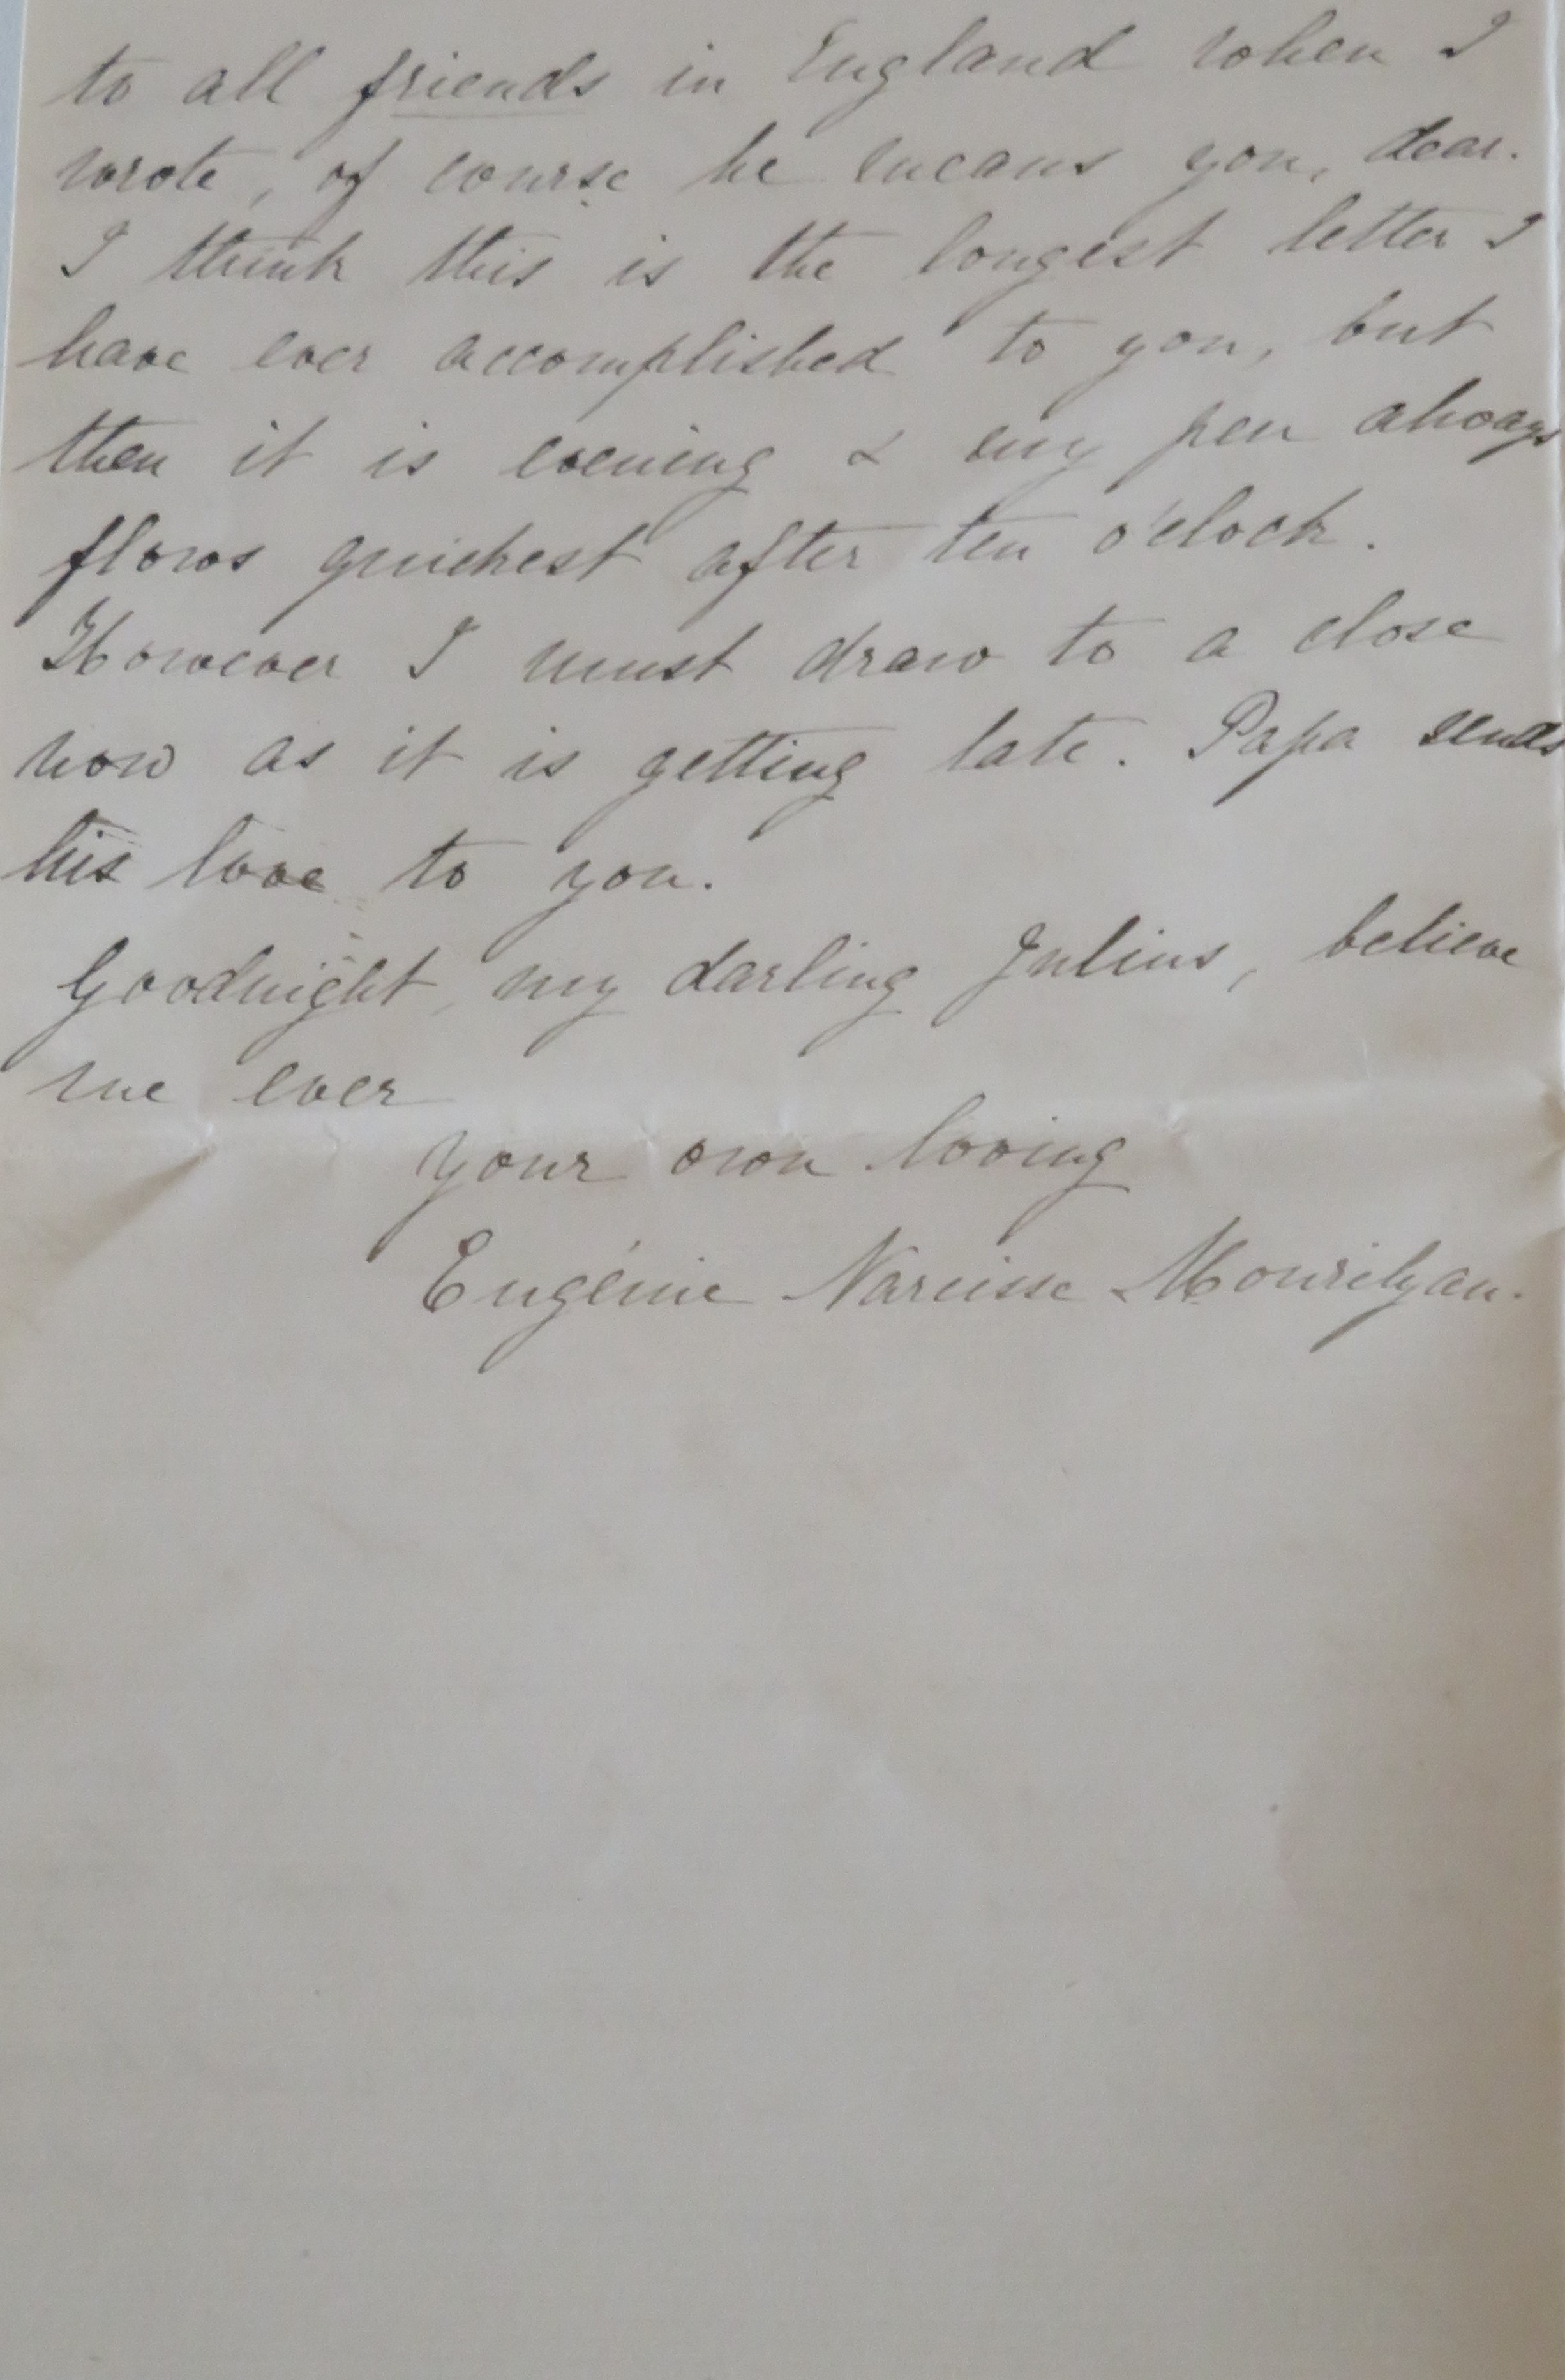 to all friends in England when I
wrote, of course he means you, dear.
I think this is the longest letter I
have ever accomplished to you, but
then it is evening & my pen always
flows quickest after ten o'clock.
However I must draw to a close
now as it is getting late. Papa sends
his love to you.
Goodnight, my darling Julius, believe
me ever
your own loving
Eugénie Narcisse Mourilyan.